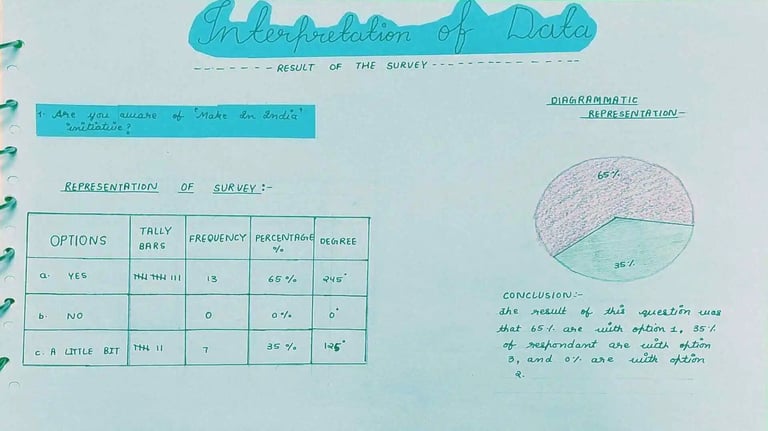 Interpretation of Data
RESULT OF THE SURVEY
1. Are you aware of "Make In India"
initiative?
REPRESENTATION OF SURVEY :-
OPTIONS TALLY BARS FREQUENCY PERCENTAGE % DEGREE
a. YES 13 65 % 245°
b. NO 0 0 % 0°
c. A LITTLE BIT 7 35 % 125°
DIAGRAMMATIC
REPRESENTATION-
65 %
35 %
CONCLUSION:-
The result of this question was
that 65 % are with option 1, 35 %
of respondant are with option
3, and 0 % are with option
2.